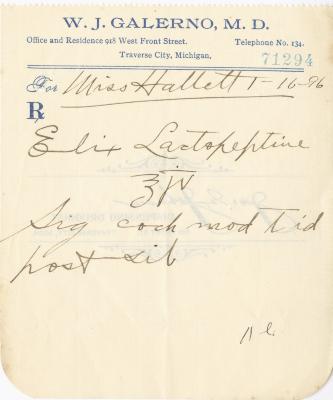 W. J. GALERNO, M. D.
Office and Residence 918 West Front Street. Telephone No. 134.
Traverse City, Michigan,
71294
For Miss Hallett 1-16-96
℞
Elix Lactopeptine
℥ IV
Sig coch mod t id
post cib